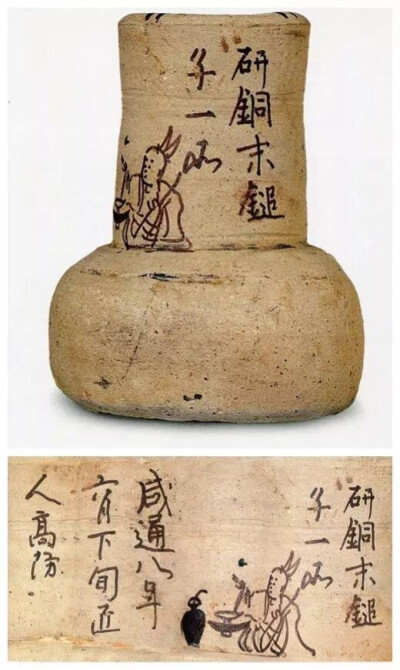 研銅末鎚
子一
研銅末鎚
子一
咸通八年
六月下旬匠
人高防